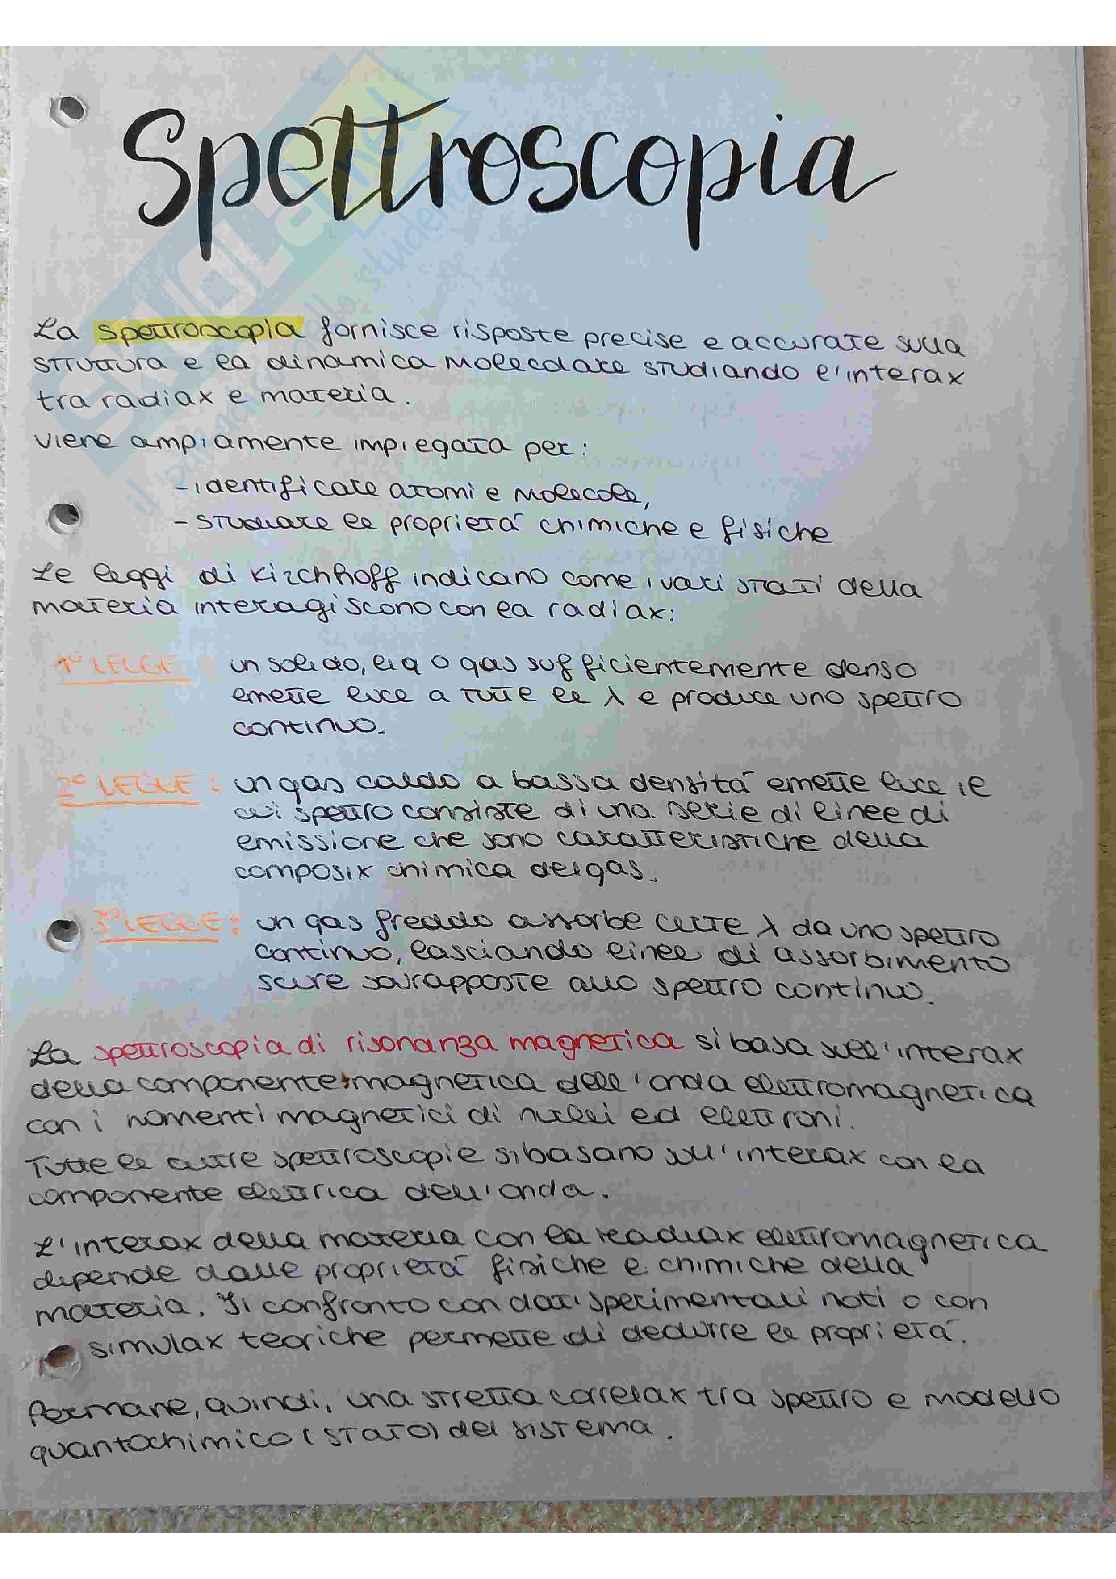 Spettroscopia
La spettroscopia fornisce risposte precise e accurate sulla
struttura e la dinamica molecolare studiando l'interax
tra radiax e materia.
Viene ampiamente impiegata per:
- identificare atomi e molecole,
- studiare le proprietà chimiche e fisiche
Le leggi di Kirchhoff indicano come i vari stati della
materia interagiscono con la radiax:
1° LEGGE : un solido, liq o gas sufficientemente denso
emette luce a tutte le λ e produce uno spettro
continuo.
2° LEGGE : un gas caldo a bassa densità emette luce il
cui spettro consiste di una serie di linee di
emissione che sono caratteristiche della
composix chimica del gas.
3° LEGGE : un gas freddo assorbe certe λ da uno spettro
continuo, lasciando linee di assorbimento
scure sovrapposte allo spettro continuo.
La spettroscopia di risonanza magnetica si basa sull'interax
della componente magnetica dell'onda elettromagnetica
con i momenti magnetici di nuclei ed elettroni.
Tutte le altre spettroscopie si basano sull'interax con la
componente elettrica dell'onda.
L'interax della materia con la readiax elettromagnetica
dipende dalle proprietà fisiche e chimiche della
materia. Il confronto con dati sperimentali noti o con
simulax teoriche permette di dedurre le proprietà.
Permane, quindi, una stretta correlax tra spettro e modello
quantochimico (STATO) del sistema.